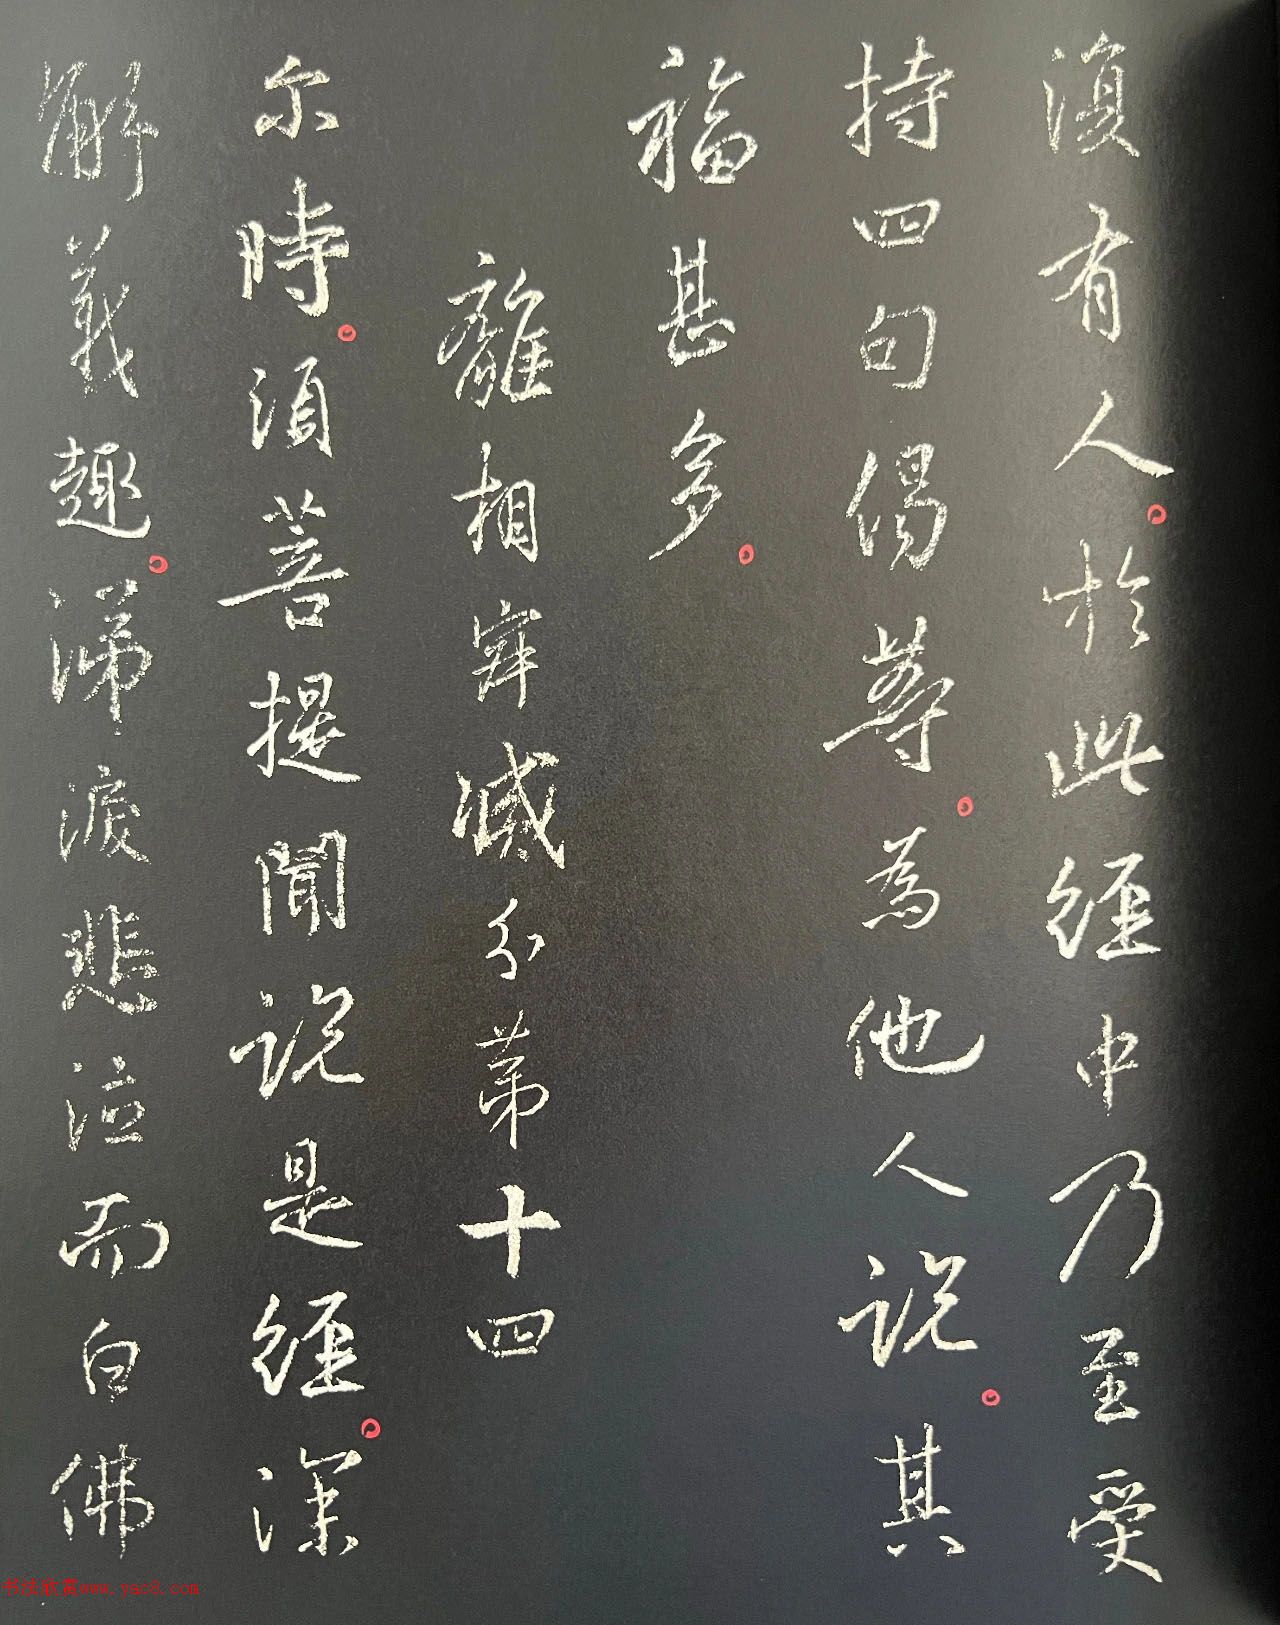 復有人。於此經中乃至受
持四句偈等。為他人說。其
福甚多。
離相寂滅分第十四
尔時。須菩提聞說是經。深
解義趣。涕淚悲泣而白佛
书法欣赏www.yac8.com